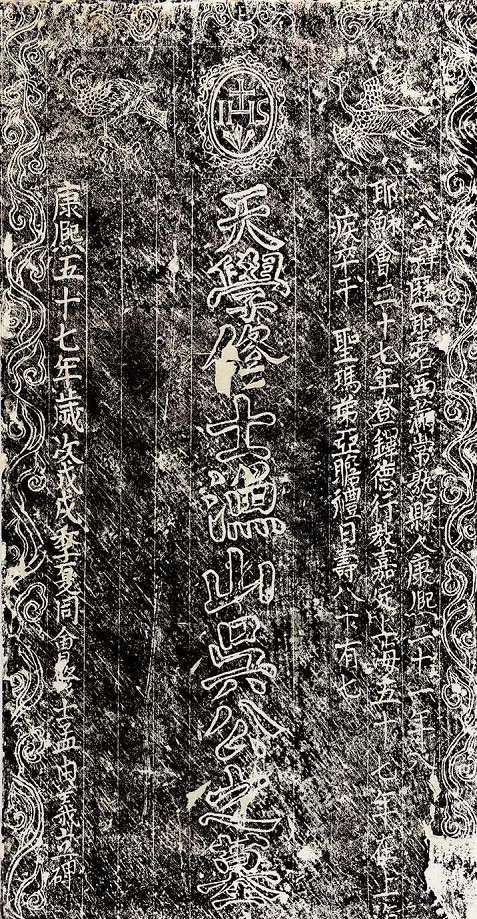 IHS
公諱歷聖名西滿常熟縣人康熙二十一年入
耶穌會二十七年登鐸德行教嘉定上海五十七年在上
疾卒于 聖瑪弟亞瞻禮日壽八十有七
天學修士漁山吳公之墓
康熙五十七年歲次戊戌季夏同會修士孟由義立碑